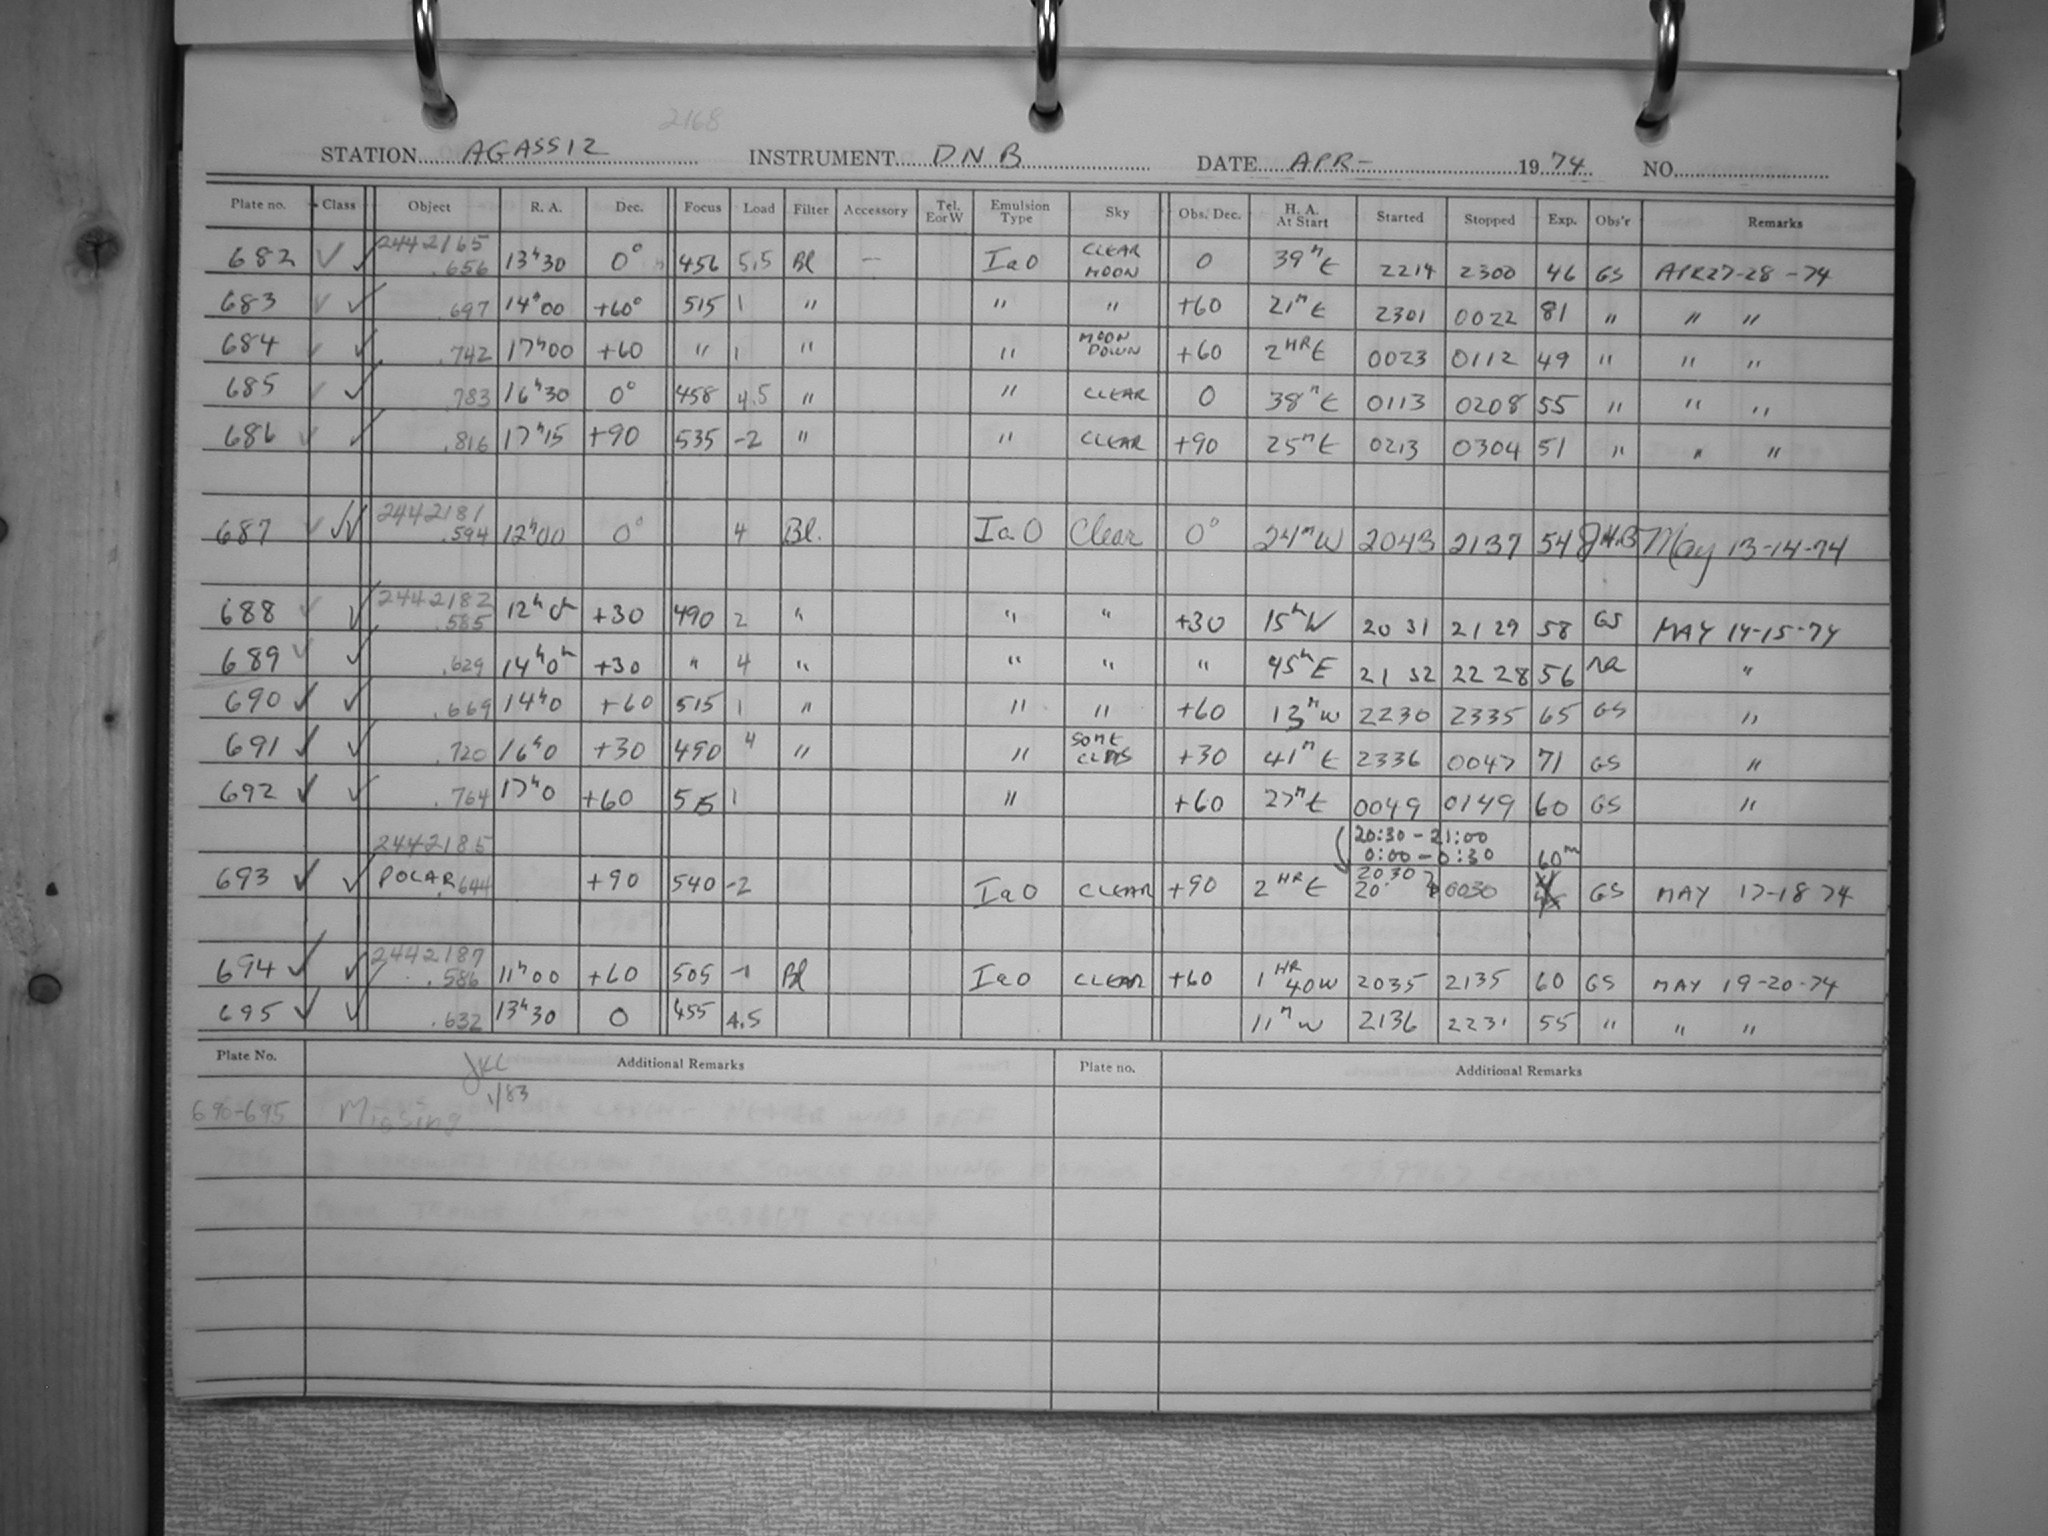 2168
STATION AGASSIZ INSTRUMENT DNB DATE APR- 1974 NO.
Plate no. Class Object R. A. Dec. Focus Load Filter Accessory Tel. E or W Emulsion Type Sky Obs. Dec. H. A. At Start Started Stopped Exp. Obs'r Remarks
682 ✓ ✓ 2442165 .656 13h30 0° 456 5.5 Bl — IaO CLEAR MOON 0 39m E 2214 2300 46 GS APR 27-28-74
683 ✓ ✓ .697 14h00 +60° 515 1 " " " +60 21m E 2301 0022 81 " " "
684 ✓ ✓ .742 17h00 +60 " 1 " " MOON DOWN +60 2HR E 0023 0112 49 " " "
685 ✓ ✓ .783 16h30 0° 458 4.5 " " CLEAR 0 38m E 0113 0208 55 " " "
686 ✓ ✓ .816 17h15 +90 535 -2 " " CLEAR +90 25m E 0213 0304 51 " " "
687 ✓ ✓✓ 2442181 .594 12h00 0° 4 Bl. IaO Clear 0° 24m W 2043 2137 54 J.H.B May 13-14-74
688 ✓ ✓ 2442182 .585 12h 0m +30 490 2 " " " +30 15m W 20 31 21 29 58 GS MAY 14-15-74
689 ✓ ✓ .629 14h 0m +30 " 4 " " " " 45m E 21 32 22 28 56 "
690 ✓ ✓ .669 14h0 +60 515 1 " " " +60 13m W 2230 2335 65 GS "
691 ✓ ✓ .720 16h0 +30 490 4 " " SOME CLDS +30 41m E 2336 0047 71 GS "
692 ✓ ✓ .764 17h0 +60 515 1 " +60 27m E 0049 0149 60 GS "
20:30 - 21:00
0:00 - 0:30 60m
693 ✓ ✓ 2442185 POLAR .644 +90 540 -2 IaO CLEAR +90 2HR E 2030 20 0030 GS MAY 17-18 74
694 ✓ ✓ 2442187 .586 11h00 +60 505 -1 Bl IaO CLEAR +60 1HR 40W 2035 2135 60 GS MAY 19-20-74
695 ✓ ✓ .632 13h30 0 455 4.5 11m W 2136 2231 55 " " "
Plate No. Additional Remarks Plate no. Additional Remarks
690-695 Missing 1/83